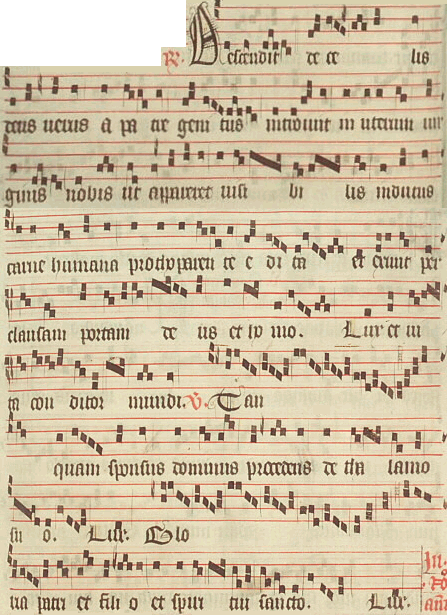 R. Descendit de ce lis
deus uerus a pa tre geni tus introiuit in uterum uir
ginis nobis ut appareret uisi bi lis indutus
carne humana prothoparen te e di ta et exiuit per
clausam portam de us et ho mo. Lux et ui
ta con ditor mundi. V. Tan
quam sponsus dominus procedens de tha lamo
su o. Lux. Glo
ria patri et fili o et spiri tui sancto. Lux.